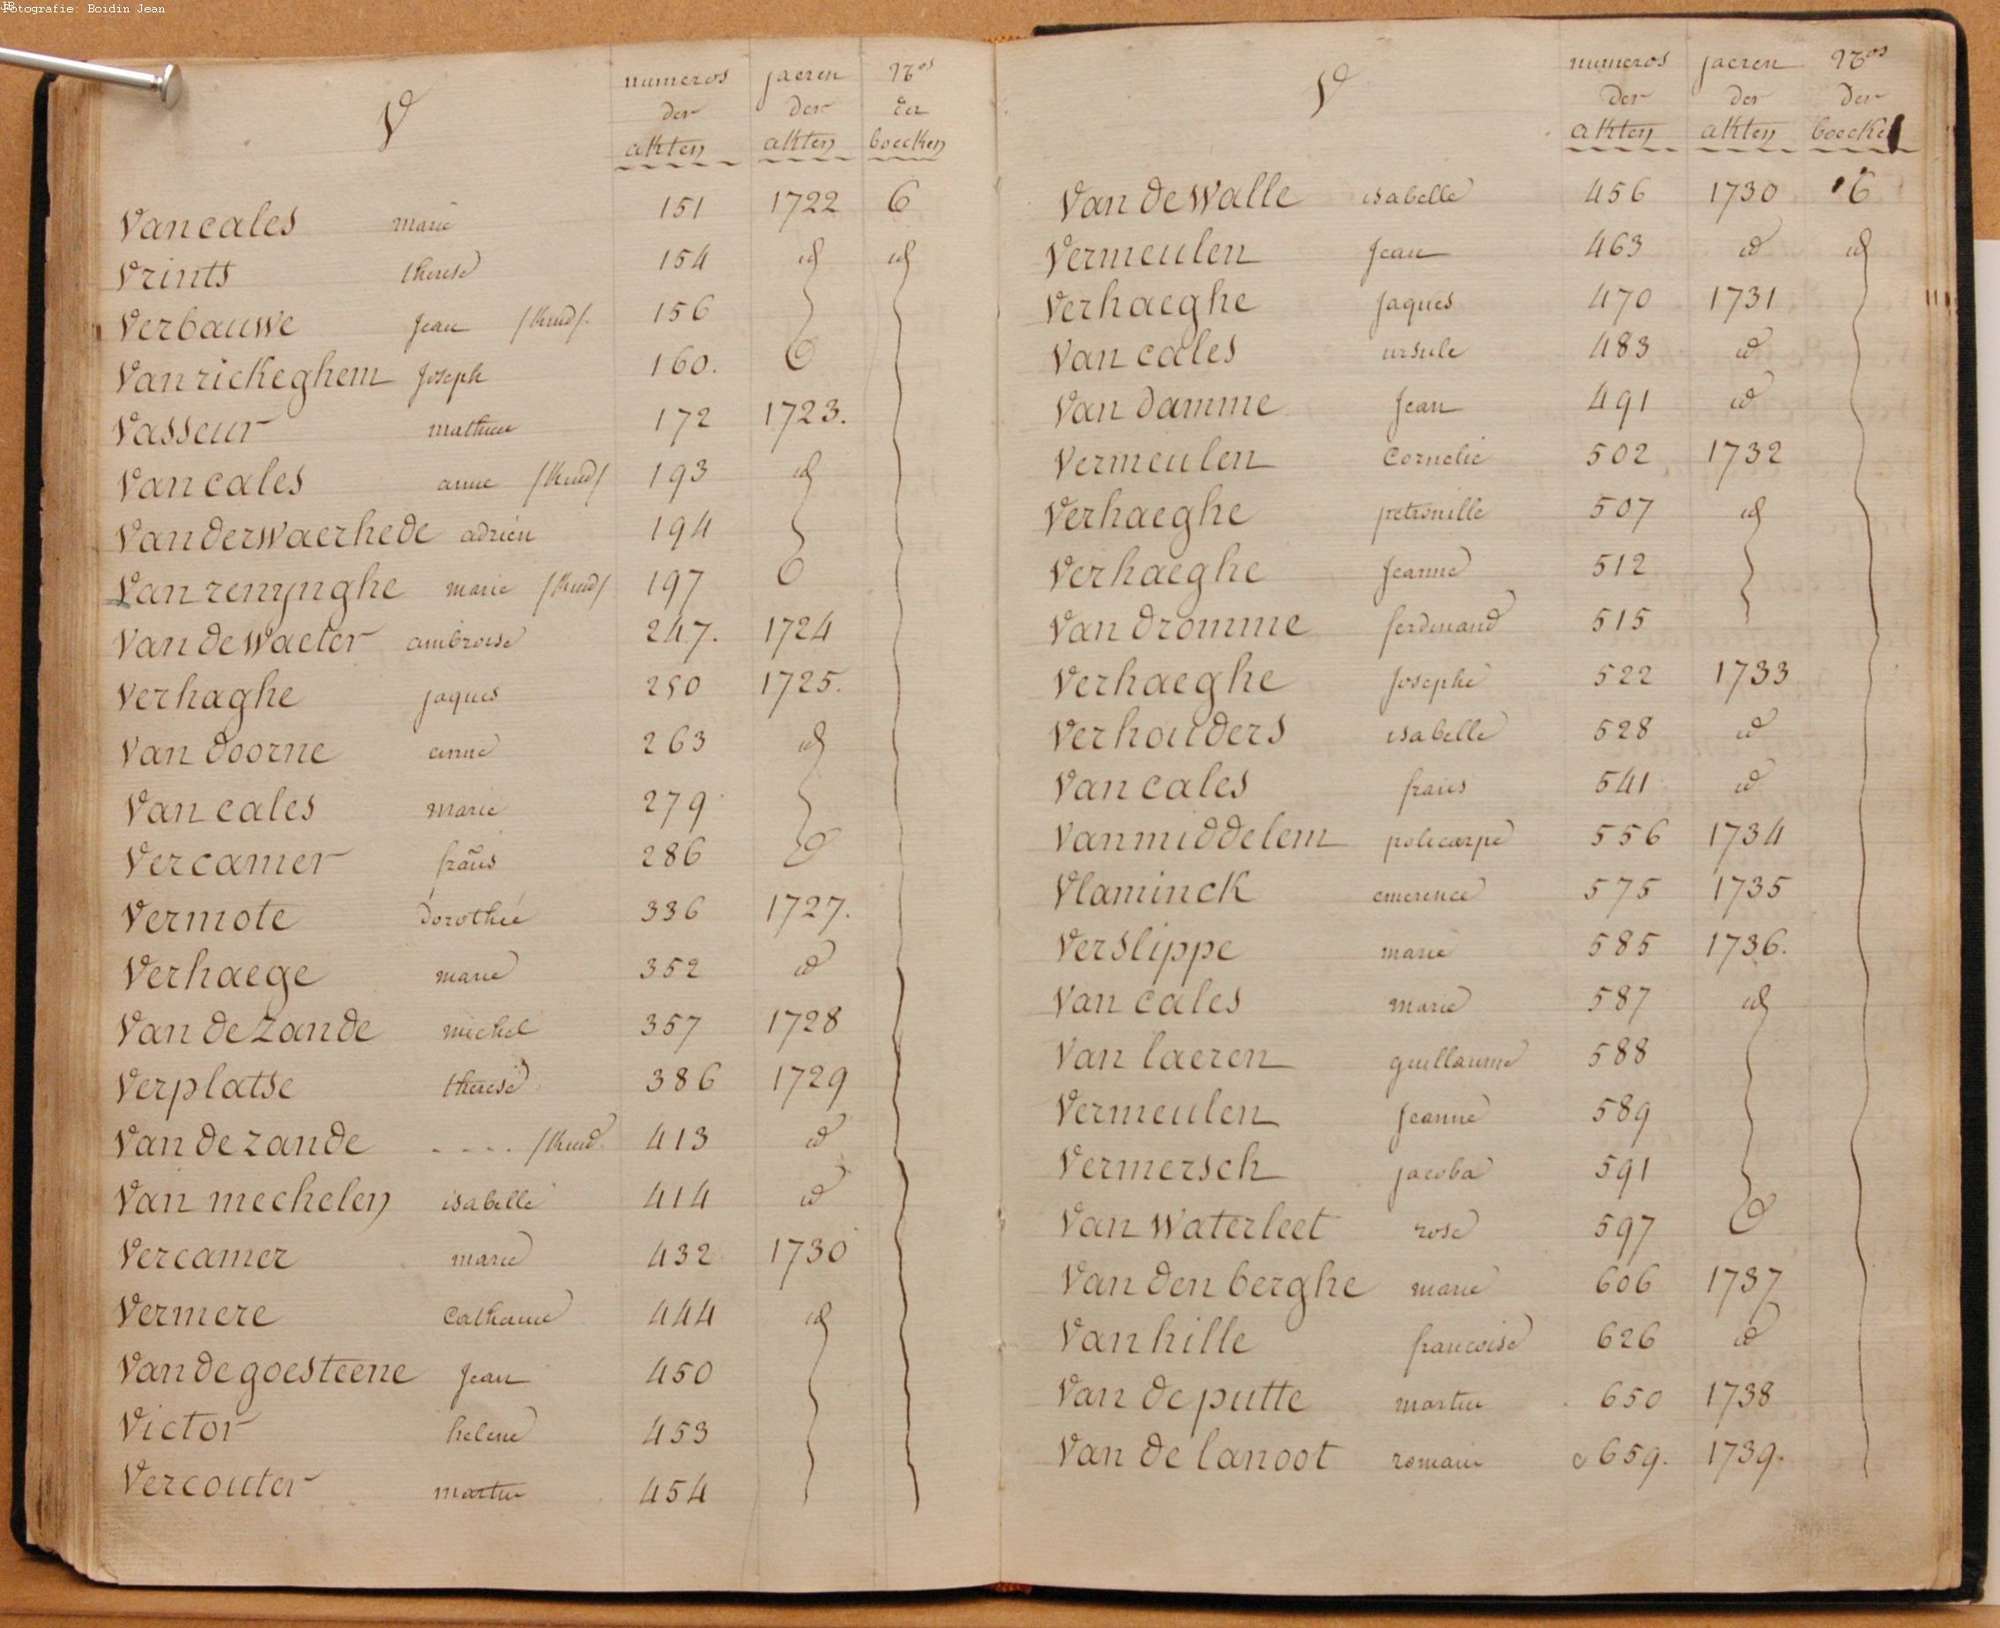 Fotografie: Boidin Jean
V
numeros der akten
jaeren der akten
Nos der boecken
Van cales marie 151 1722 6
Vrints therese 154 id id
Verbauwe jean /kind/. 156
Van rickeghem joseph 160.
Vasseur mathieu 172 1723.
Van cales anne /kind/ 193 id
Van derwaerhede adrien 194
Van renynghe marie /kind/ 197
Van de waeter ambroise 247. 1724
Verhaghe jaques 250 1725.
Van doorne anne 263 id
Van cales marie 279
Vercamer frans 286
Vermote dorothée 336 1727.
Verhaege marie 352 id
Van de zande michel 357 1728
Verplatse therese 386 1729
Van de zande .... /kind 413 id
Van mechelen isabelle 414 id
Vercamer marie 432 1730
Vermere Catharine 444 id
Van de goesteene jean 450
Victor helene 453
Vercouter martin 454
V
numeros der akten
jaeren der akten
Nos der boecken
Van de Walle isabelle 456 1730 6
Vermeulen jean 463 id id
Verhaeghe jaques 470 1731
Van cales ursule 483 id
Van damme jean 491 id
Vermeulen Cornelie 502 1732
Verhaeghe petronille 507 id
Verhaeghe jeanne 512
Van dromme ferdinand 515
Verhaeghe josephe 522 1733
Verhouders isabelle 528 id
Van cales frans 541 id
Van middelem policarpe 556 1734
Vlaminck emerence 575 1735
Verslippe marie 585 1736.
Van cales marie 587 id
Van laeren guillaume 588
Vermeulen jeanne 589
Vermersch jacoba 591
Van Waterleet rose 597
Van den berghe marie 606 1737
Van hille francoise 626 id
Van de putte martin 650 1738
Van de lanoot romain 659. 1739.